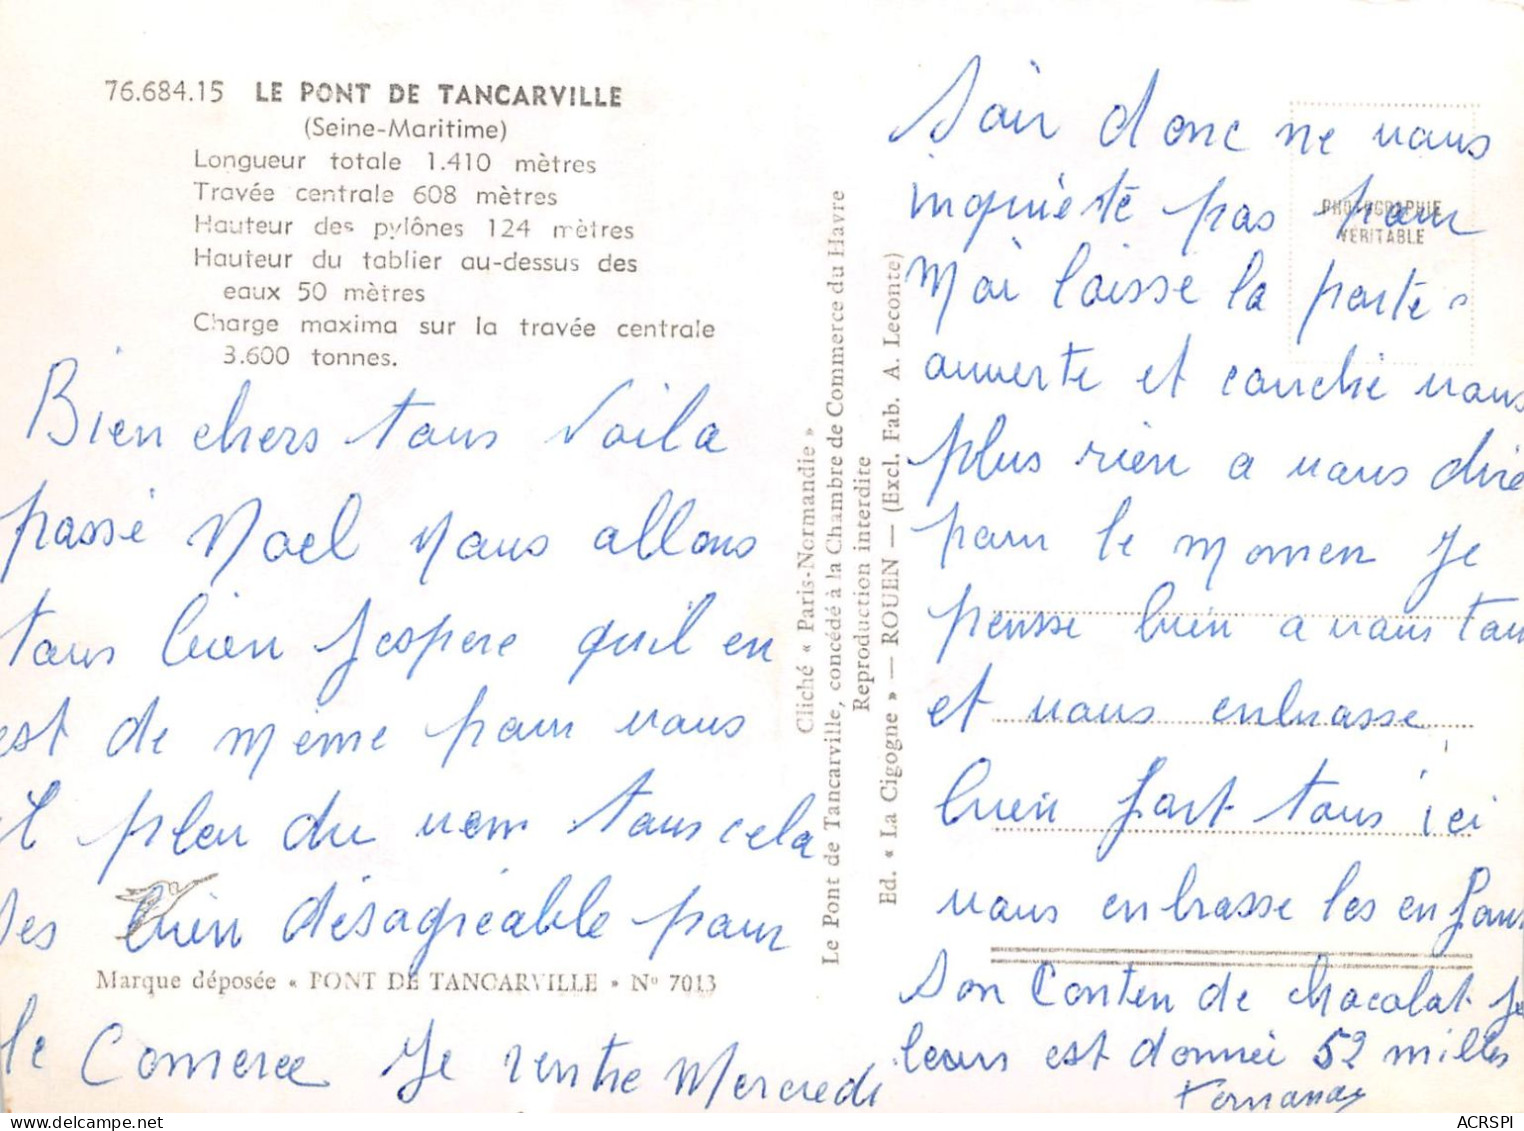 76.684.15 LE PONT DE TANCARVILLE
(Seine-Maritime)
Longueur totale 1.410 mètres
Travée centrale 608 mètres
Hauteur des pylônes 124 mètres
Hauteur du tablier au-dessus des
eaux 50 mètres
Charge maxima sur la travée centrale
3.600 tonnes.
Bien chers tous Voila
passé Noel Nous allons
tous bien Jespere quil en
est de même pour vous
il pleu du vem tous cela
Des bien désagréable pour
Marque déposée « PONT DE TANCARVILLE » Nº 7013
le Comerce Je rentre Mercredi
Cliché « Paris-Normandie »
Le Pont de Tancarville, concédé à la Chambre de Commerce du Havre
Reproduction interdite
Ed. « La Cigogne » — ROUEN — (Excl. Fab. A. Leconte)
PHOTOGRAPHIE
VÉRITABLE
Soir donc ne vous
inquiété pas pour
Moi laisse la porte
ouverte et couché vous
plus rien a vous dire
pour le momen Je
pensse bien a vous tous
et vous enbrasse
bien fort tous ici
vous enbrasse les enfans
Son Conten de chocolat Je
leurs est donnée 52 milles
Fernande
ACRSPI